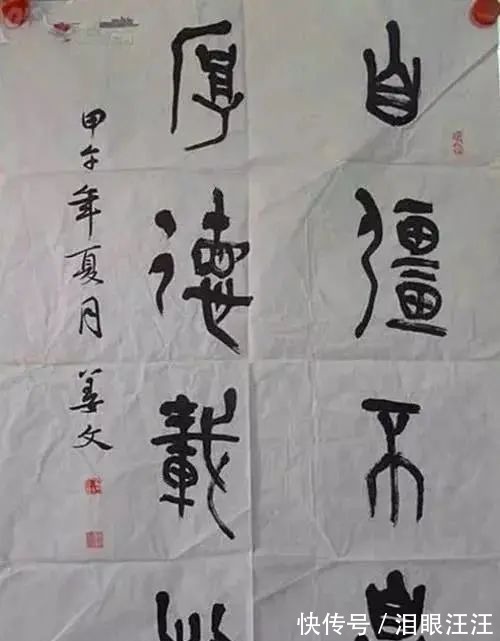 自彊不
厚德載
甲午年夏月 姜文
快传号 / 泪眼汪汪